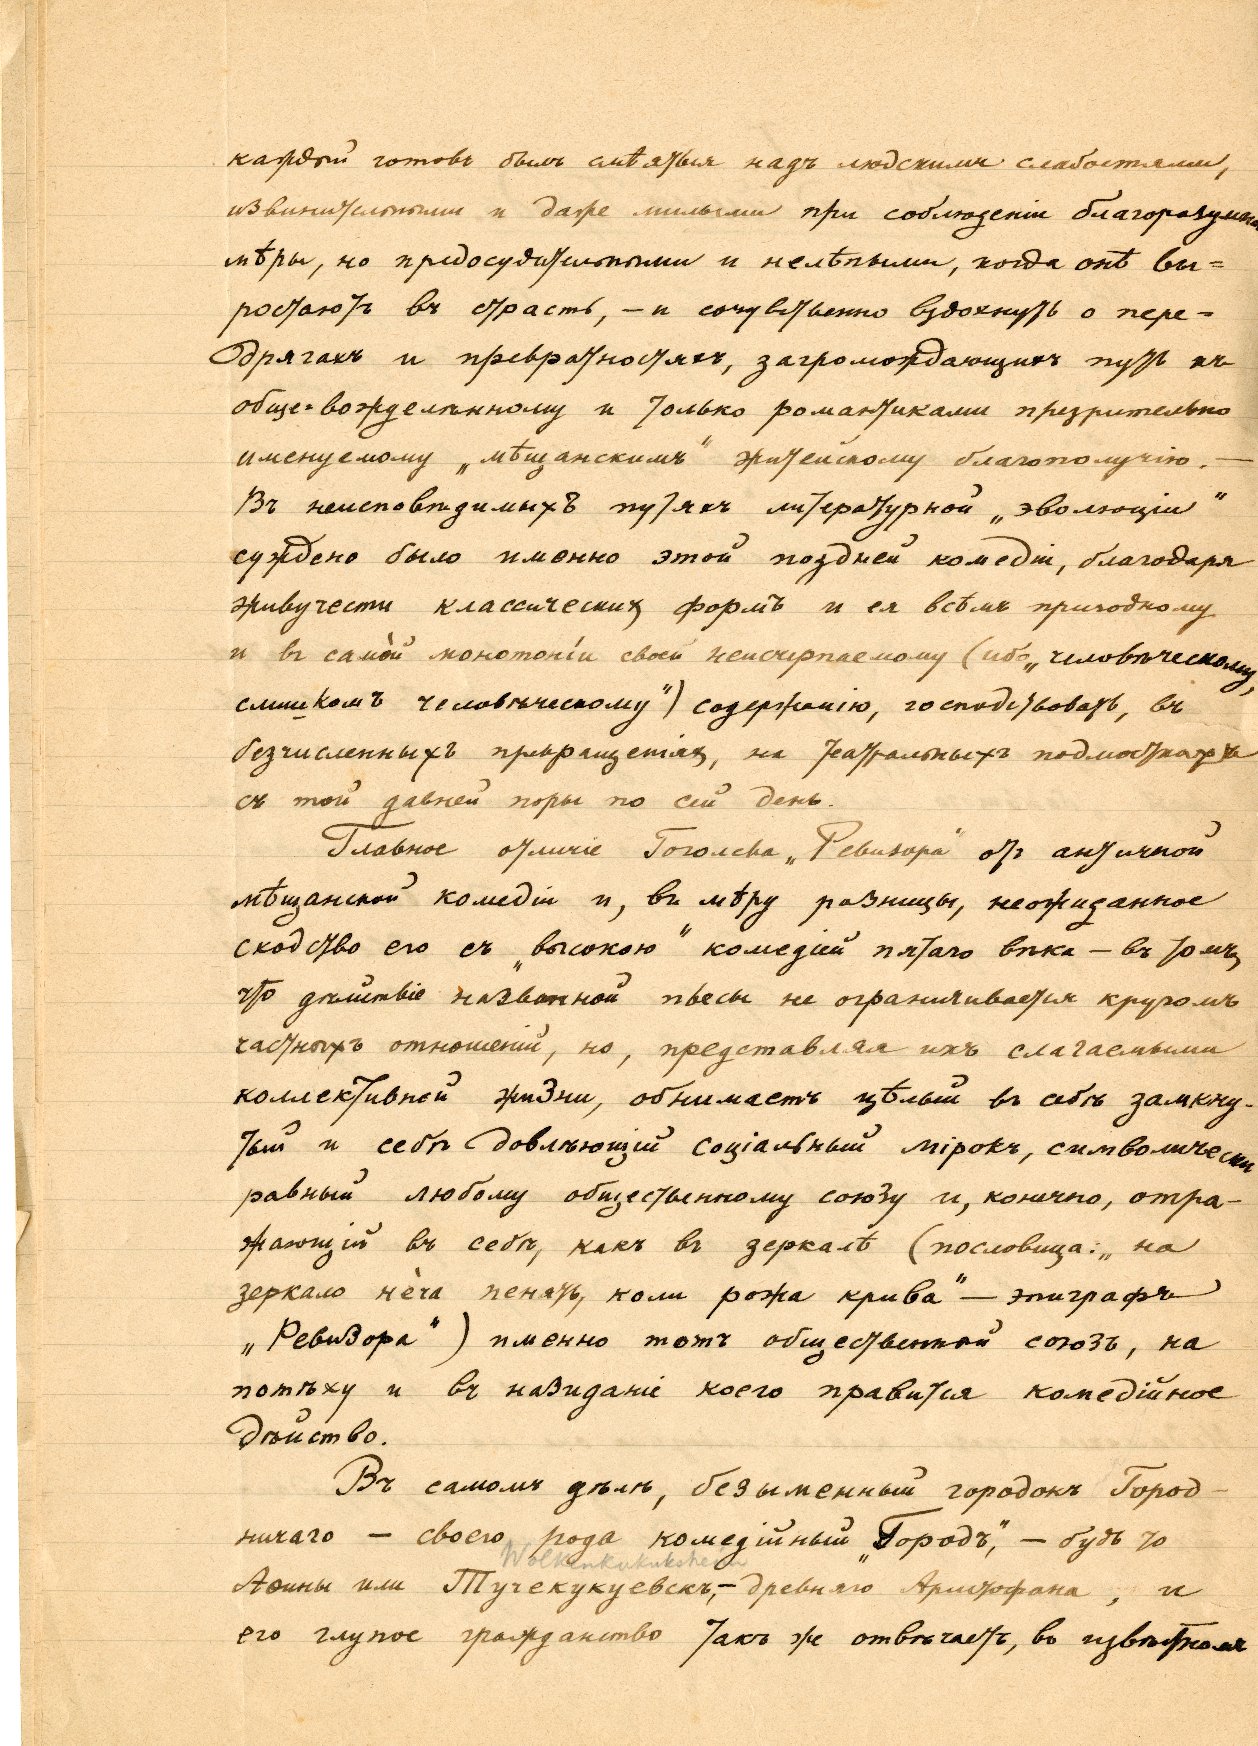 каждый готовъ былъ смѣяться надъ людскими слабостями,
извинительными и даже милыми при соблюденіи благоразумной
мѣры, но предосудительными и нелѣпыми, когда онѣ вы=
ростаютъ въ страсть, – и сочувственно вздохнуть о пере=
дрягахъ и превратностяхъ, загромождающихъ путь къ
обще=вожделѣнному и только романтиками презрительно
именуемому „мѣщанскимъ" житейскому благополучію. —
Въ неисповѣдимыхъ путяхъ литературной „эволюціи"
суждено было именно этой поздней комедіи, благодаря
живучести классическихъ формъ и ея всѣмъ пригодному
и въ самой монотоніи своей неисчерпаемому (ибо „человѣческому,
слишкомъ человѣческому") содержанію, господствовать, въ
безчисленныхъ превращеніяхъ, на театральныхъ подмосткахъ
съ той давней поры по сей день.
Главное отличіе Гоголева „Ревизора" отъ античной
мѣщанской комедіи и, въ мѣру разницы, неожиданное
сходство его съ „высокою" комедіей пятаго вѣка – въ томъ,
что дѣйствіе названной пьесы не ограничивается кругомъ
частныхъ отношеній, но, представляя ихъ слагаемыми
коллективной жизни, обнимаетъ цѣлый въ себѣ замкну-
тый и себѣ довлѣющій соціальный мірокъ, символически
равный любому общественному союзу и, конечно, отра-
жающій въ себѣ, какъ въ зеркалѣ (пословица: „на
зеркало нѐча пенять, коли рожа крива" – эпиграфъ
„Ревизора") именно тотъ общественный союзъ, на
потѣху и въ назиданіе коего правится комедійное
дѣйство.
Въ самомъ дѣлѣ, безыменный городокъ Город-
ничаго – своего рода комедійный „Городъ", – будь то
Wolkenkukuksheim
Аѳины или Тучекукуевскъ, – древняго Аристофана, и
его глупое гражданство такъ же отвѣчаетъ, въ извѣстномъ